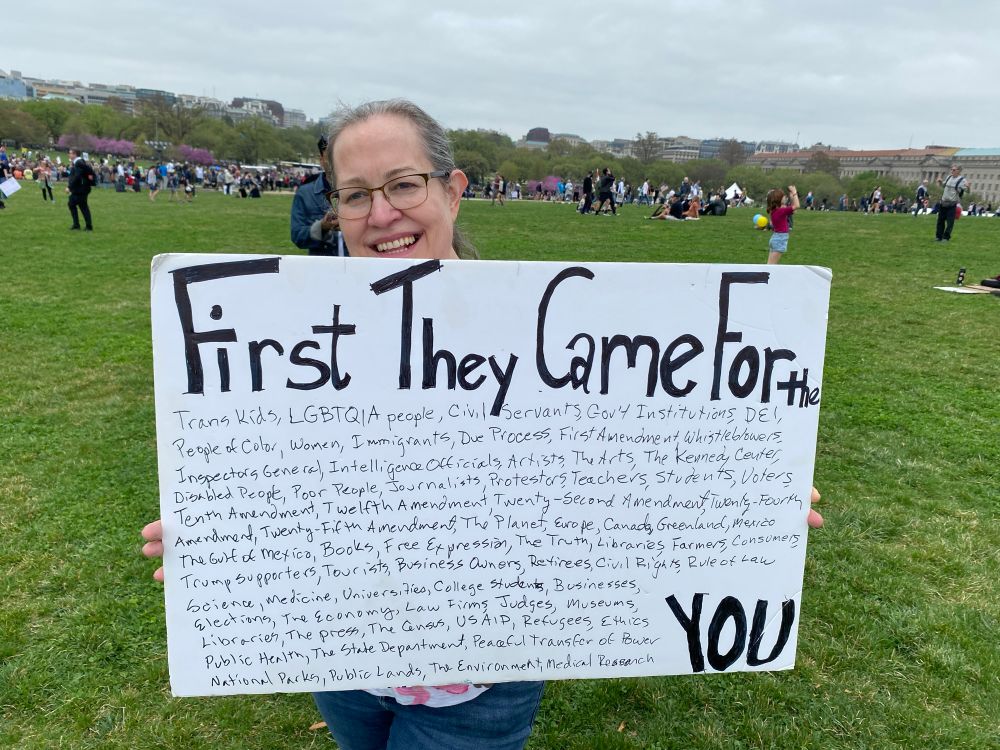 First They Came For the
Trans Kids, LGBTQIA people, Civil Servants, Gov't Institutions, DEI,
People of Color, Women, Immigrants, Due Process, First Amendment, Whistleblowers,
Inspectors General, Intelligence Officials, Artists, The Arts, The Kennedy Center,
Disabled People, Poor People, Journalists, Protestors, Teachers, Students, Voters,
Tenth Amendment, Twelfth Amendment, Twenty-Second Amendment, Twenty-Fourth
Amendment, Twenty-Fifth Amendment, The Planet, Europe, Canada, Greenland, Mexico
The Gulf of Mexico, Books, Free Expression, The Truth, Libraries, Farmers, Consumers,
Trump supporters, Tourists, Business Owners, Retirees, Civil Rights, Rule of Law
Science, Medicine, Universities, College Students, Businesses,
Elections, The Economy, Law Firms, Judges, Museums,
Libraries, The press, The Census, USAID, Refugees, Ethics
Public Health, The State Department, Peaceful Transfer of Power
National Parks, Public Lands, The Environment, Medical Research
YOU